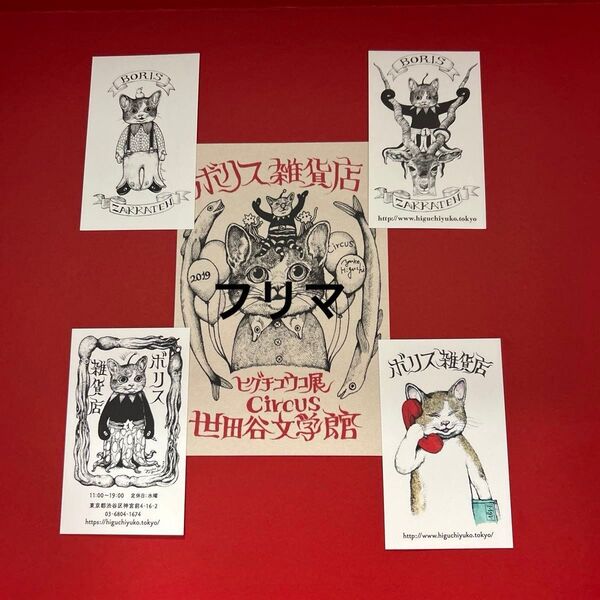 BORIS
ZAKKATEN
BORIS
ZAKKATEN
http://www.higuchiyuko.tokyo
ボリス雑貨店
Circus
Yuko Higuchi
2019
フリマ
ヒグチユウコ展
Circus
世田谷文学館
ボリス
雑貨店
11:00〜19:00 定休日:水曜
東京都渋谷区神宮前4-16-2
03-6804-1674
https://higuchiyuko.tokyo/
ボリス雑貨店
http://www.higuchiyuko.tokyo/